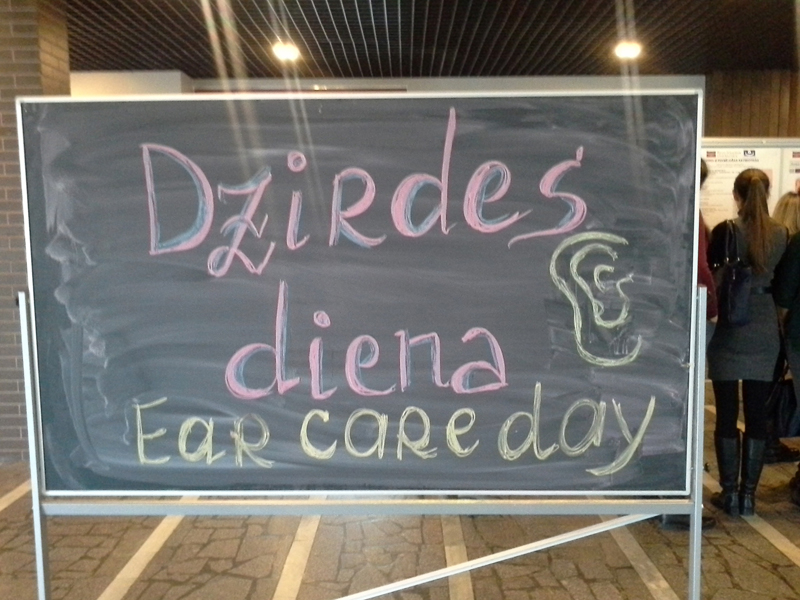 Dzirdes
diena
Ear care day